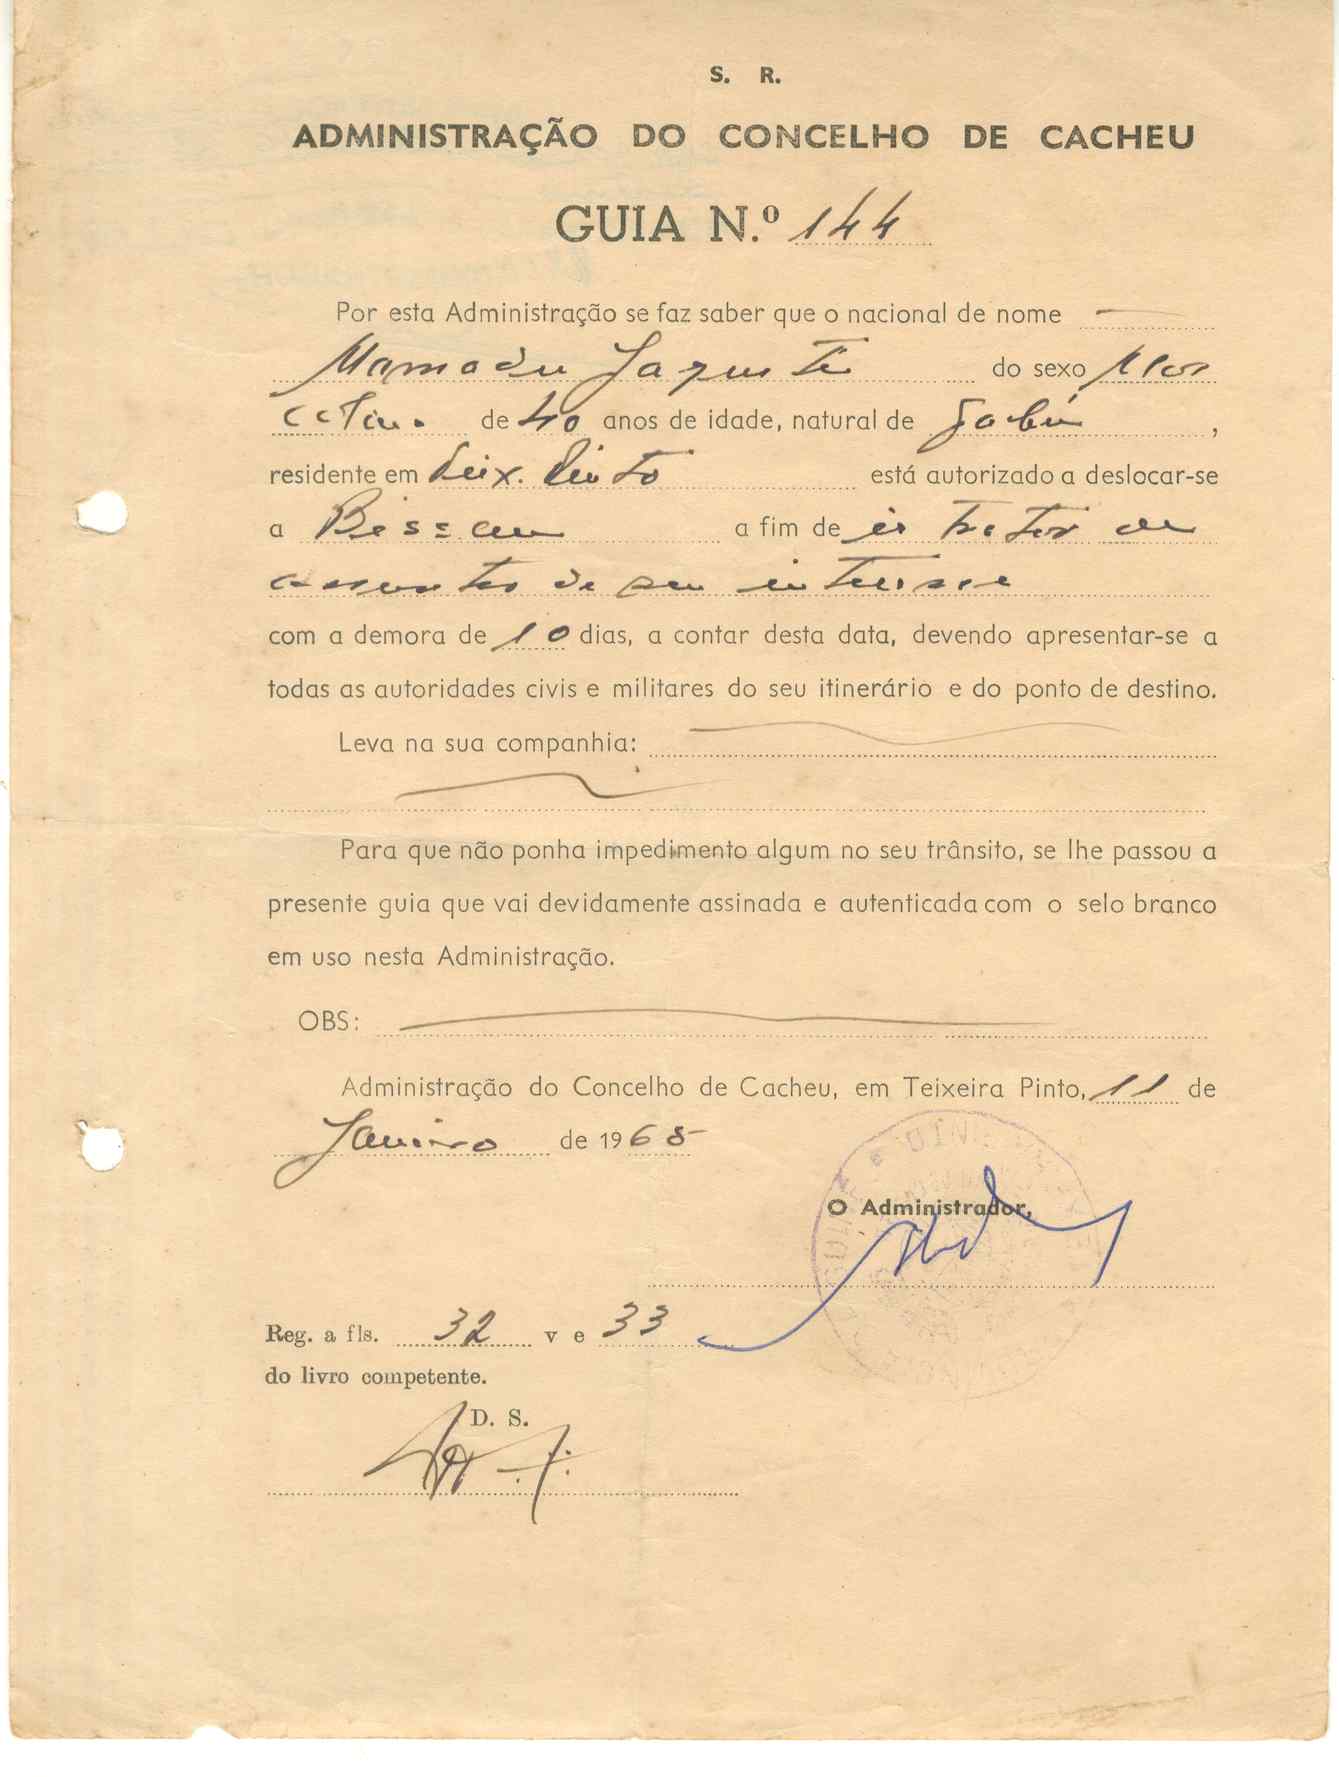 S. R.
ADMINISTRAÇÃO DO CONCELHO DE CACHEU
GUIA N.º 144
Por esta Administração se faz saber que o nacional de nome
Mamadu Jaquité do sexo Mas
culino de 40 anos de idade, natural de Gabú,
residente em Teix. Pinto está autorizado a deslocar-se
a Bissau a fim de ir tratar de
assuntos de seu interesse
com a demora de 10 dias, a contar desta data, devendo apresentar-se a
todas as autoridades civis e militares do seu itinerário e do ponto de destino.
Leva na sua companhia:
Para que não ponha impedimento algum no seu trânsito, se lhe passou a
presente guia que vai devidamente assinada e autenticada com o selo branco
em uso nesta Administração.
OBS:
Administração do Concelho de Cacheu, em Teixeira Pinto, 11 de
Janeiro de 1968
O Administrador,
Reg. a fls. 32 v e 33
do livro competente.
D. S.